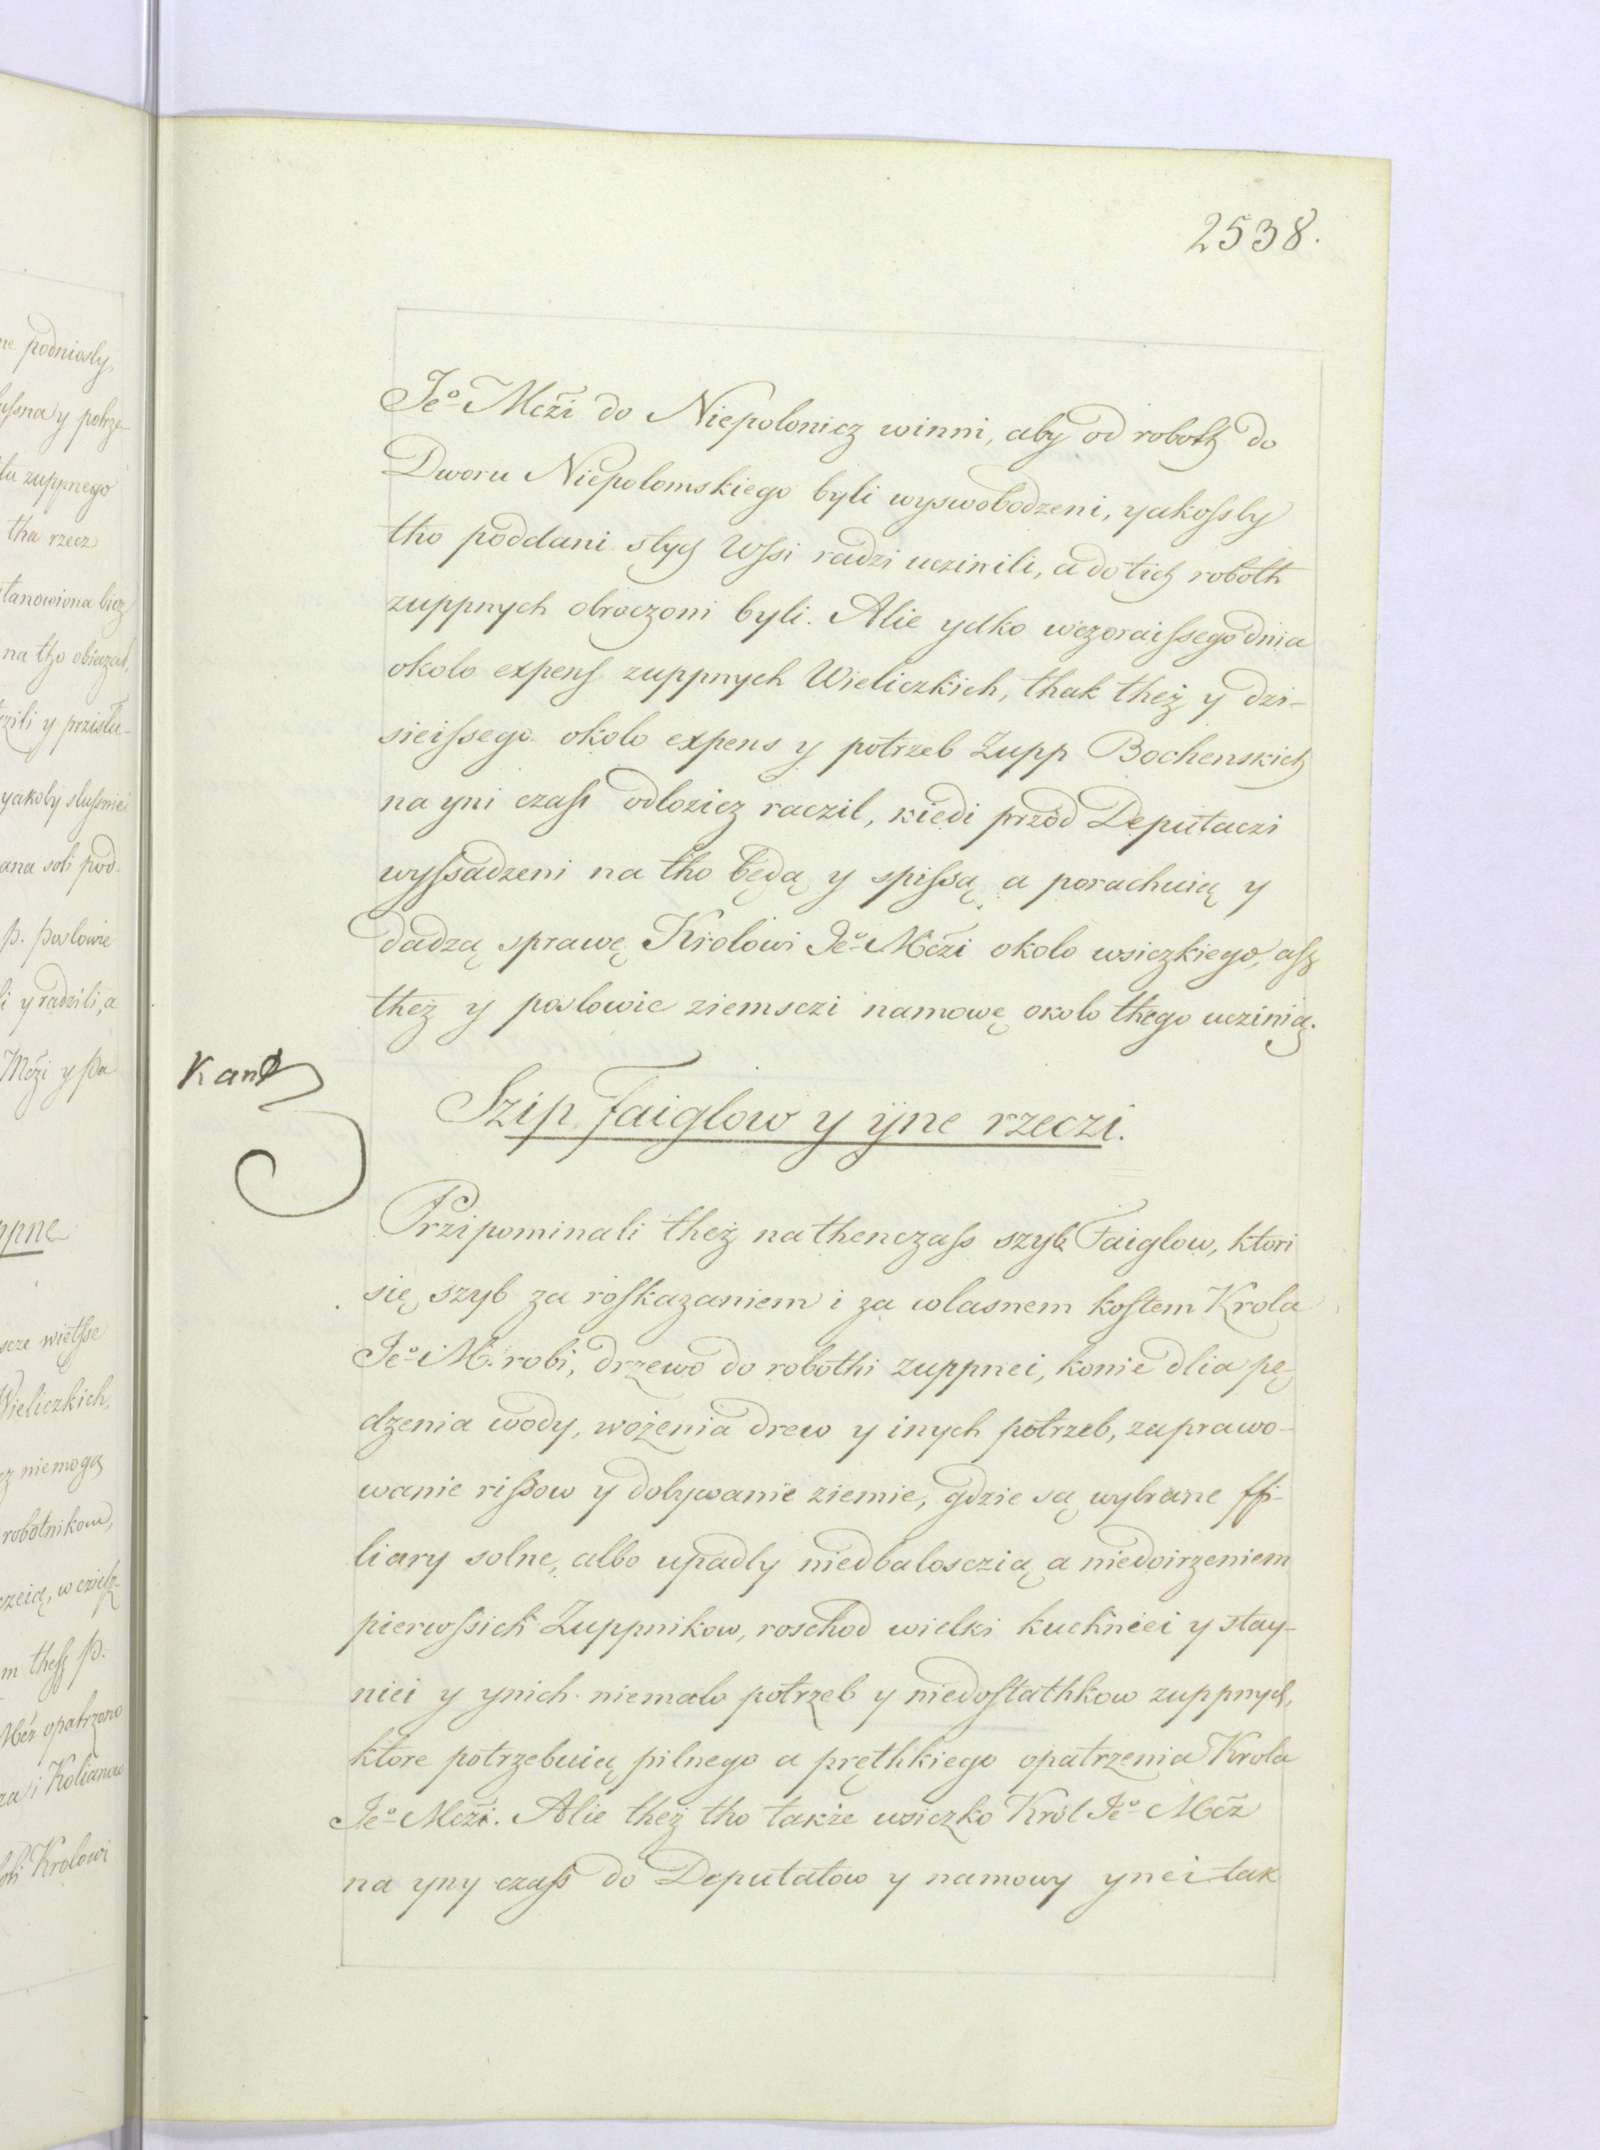 2538.
Jeo Mczi do Niepolonicz winni, aby od roboth do
Dworu Niepolomskiego byli wyswobodzeni, yakossby
tho poddani stych Wssi radzi uczinili, a do tich roboth
zuppnych obroczoni byli. Alie ydko wczoraissego dnia
okolo expens zuppnych Wieliczkich, thak theż y dzi-
sieissego okolo expens y potrzeb Zupp Bochenskich
na yni czass odlozicz raczil, kiedi przód Deputaczi
wyssadzeni na tho będą y spissą a porachuią y
dadzą sprawę Krolowi Jeo Mczi okolo wsiczkiego, asz
theż y poslowie ziemsczi namowę okolo thego uczinią.
Kant
Szip Faiglow y yne rzeczi.
Przipominali theż nathenczass szyb Faiglow, ktori
się szyb za roskazaniem i za wlasnem kostem Krola
Jeo M. robi, drzewo do robothi zuppnei, konie dlia pę
dzenia wody, wożenia drew y inych potrzeb, zaprawo-
wanie rissow y dobywanie ziemie, gdzie są wybrane ffi-
liary solne, albo upadly niedbalosczią a niedoirzeniem
pierwssich Zuppnikow, roschod wielki kuchniei y stay-
niei y ynich niemalo potrzeb y niedostathkow zuppnych,
ktore potrzebuią pilnego a pręthkiego opatrzenia Krola
Jeo Mczi. Alie theż tho także wsiczko Król Jeo Mcz
na yny czass do Deputatow y namowy ynei tak
podniosly,
y potrze-
zuppnego
tha rzecz
na tho obiczal,
y przislu-
yakoby slussniei
p. poslowie
y radzili, a
Mczi y Pa
wietsse
Wieliczkich,
niemogą
robotnikow,
opatrzono
i Kolianow
Krolowi